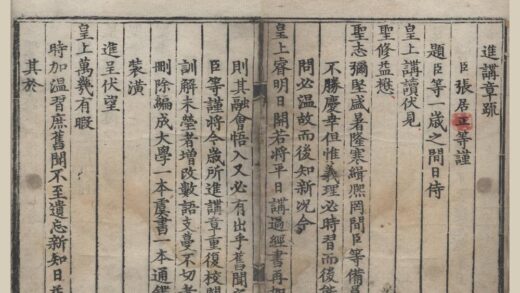 進講章疏
臣張居正等謹
題臣等一歲之間日侍
皇上講讀伏見
聖修益懋
聖志彌堅盛暑隆寒緝熙罔間臣等備員
不勝慶幸但惟義理必時習而後能
問必温故而後知新況今
皇上睿明日開若將平日講過經書再加
則其融會悟入又必有出乎舊聞之
臣等謹將今歲所進講章重復校閱
訓解未瑩者增改數語支蔓不切者
刪除編成大學一本虞書一本通鑑
裝潢
進呈伏望
皇上萬幾有暇
時加温習庶舊聞不至遺忘新知日益
其於